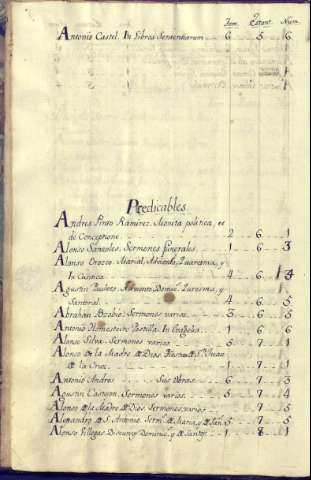 Tom. Estant. Num.
Antonio Castel. In libros Sententiarum 6 5 6
Predicables
Andres Pinto Ramirez. Monita politica, et
de Conceptione 2 6 1
Alonso Sermones funerales 1 6 3
Alonso Orozco. Marial, Adviento, Quaresma, y
In Cantica 4 6 3
Agustin Adviento Quresma, y
Santoral 4 6 5
Abrahan Bzobio. Sermones varios 3 6 5
Antonio Postilla In Evangelia 1 6 6
Alonso Silva. Sermones varios 5 7 1
Alonso de la Madre de Dios. de S. Juan
de la Cruz 1 7 1
Antonio Andres Sus Obras 6 7 3
Agustin Castejon. Sermones varios 5 7 4
Alonso de la Madre de Dios. Sermones varios 7 5
Alexandro de S. Antonio. Serm. de Maria, y de San. 5 7 5
Alonso Villegas. Discursos Dominic. y de Santos 1 8 1